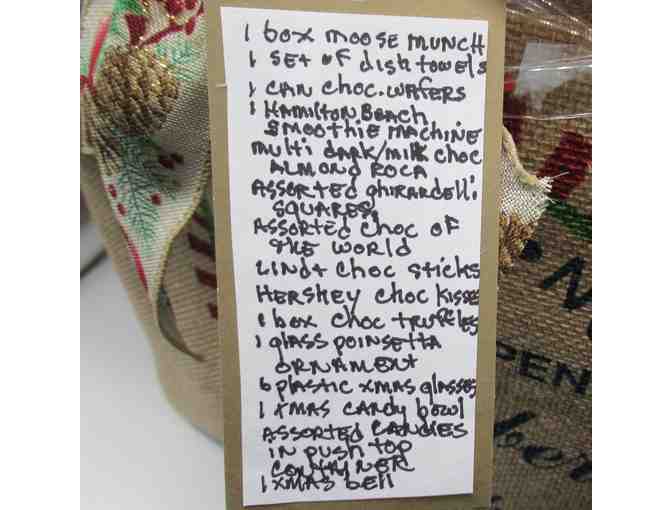 1 box moose munch
1 set of dish towels
1 can choc. wafers
1 Hamilton Beach
smoothie machine
multi dark/milk choc
Almond Roca
Assorted ghirardelli
squares
Assorted choc of
the world
Lindt choc sticks
Hershey choc kisse
1 box choc truffles
1 glass poinsetta
ornament
6 plastic xmas glasses
1 xmas candy bowl
assorted candies
in push top
container
1 xmas bell
PEN
ber